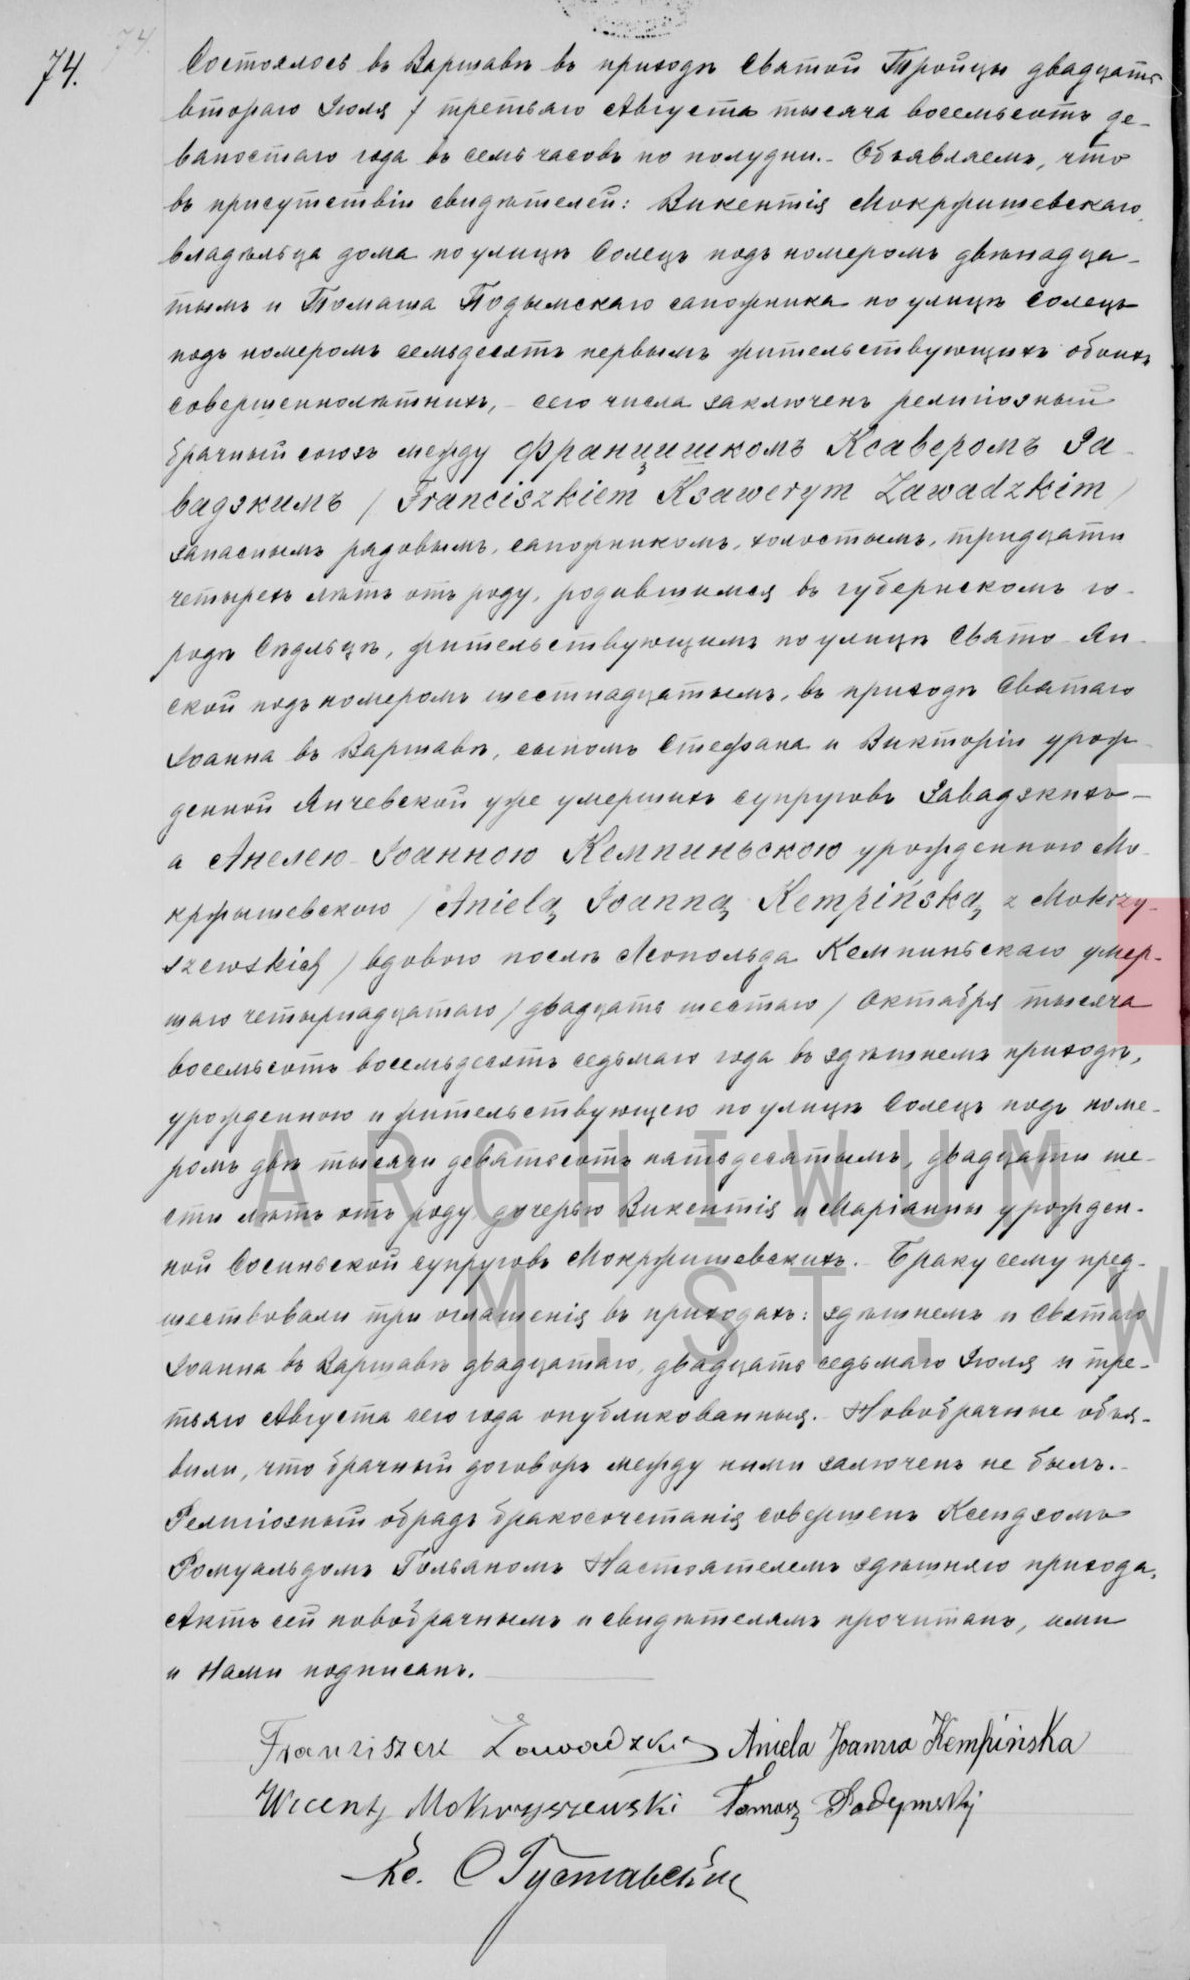 74.
Состоялось въ Варшавѣ въ приходѣ Святой Тройцы двадцать
втораго Іюля / третьяго Августа тысяча восемьсотъ де-
вяностаго года въ семь часовъ по полудни.- Объявляемъ, что
въ присутствіи свидѣтелей: Викентія Мокржишевскаго,
владѣльца дома по улицѣ Солецъ подъ номеромъ двѣнадца-
тымъ и Томаша Подымскаго сапожника по улицѣ Солецъ
подъ номеромъ семьдесятъ первымъ жительствующихъ обоихъ
совершеннолѣтнихъ, - сего числа заключенъ религіозный
брачный союзъ между Францишкомъ Ксаверомъ За-
вадзкимъ / Franciszkiem Ksawerym Zawadzkim /
запаснымъ рядовымъ, сапожникомъ, холостымъ, тридцати
четырехъ лѣтъ отъ роду, родившимся въ губернскомъ го-
родѣ Сѣдльцѣ, жительствующимъ по улицѣ Свято-Ян-
ской подъ номеромъ шестнадцатымъ, въ приходѣ Святаго
Іоанна въ Варшавѣ, сыномъ Стефана и Викторіи урож-
денной Янчевской уже умершихъ супруговъ Завадзкихъ -
а Анелею-Іоанною Кемпиньскою урожденною Мо-
кржышевскою / Anielą Joanną Kempińską z Mokrzy-
szewskich / вдовою послѣ Леопольда Кемпиньскаго умер-
шаго четырнадцатаго / двадцать шестаго / Октября тысяча
восемьсотъ восемьдесятъ седьмаго года въ здѣшнемъ приходѣ,
урожденною и жительствующею по улицѣ Солецъ подъ номе-
ромъ двѣ тысячи девятьсотъ пятьдесятымъ, двадцати ше-
сти лѣтъ отъ роду дочерью Викентія и Маріанны урожден-
ной Сосиньской супруговъ Мокржишевскихъ.- Браку сему пред-
шествовали три оглашенія въ приходахъ: здѣшнемъ и Святаго
Іоанна въ Варшавѣ двадцатаго, двадцать седьмаго Іюля и тре-
тьяго Августа сего года опубликованныя.- Новобрачные объя-
вили, что брачный договоръ между ними залюченъ не былъ.-
Религіозный обрядъ бракосочетанія совершенъ Ксендзомъ
Ромуальдомъ Гольяномъ Настоятелемъ здѣшняго прихода.
Актъ сей новобрачнымъ и свидѣтелямъ прочитанъ, ими
и Нами подписанъ.
Franciszek Zawadzki Aniela Joanna Kempińska
Wicenty Mokrzyszewski Tomasz Podymski
Кс.
ARCHIWUM
M. ST. W